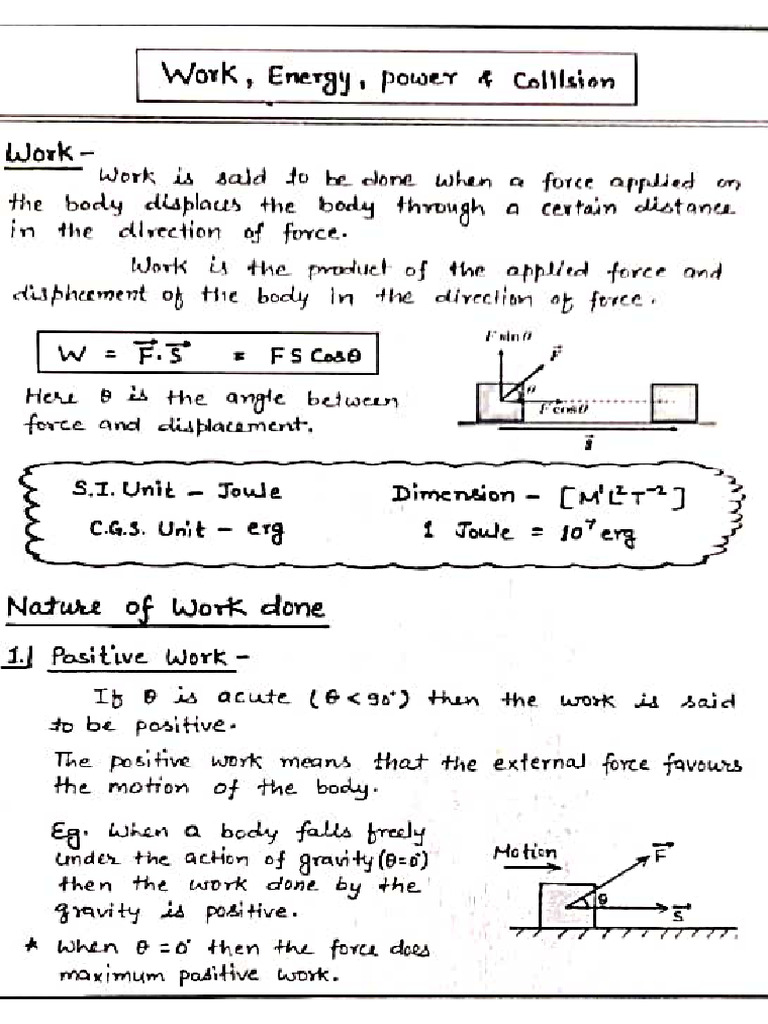 Work, Energy, power & Collision
Work -
Work is said to be done when a force applied on
the body displaces the body through a certain distance
in the direction of force.
Work is the product of the applied force and
displacement of the body in the direction of force.
W = F⃗.S⃗ = F S Cosθ
Here θ is the angle between
force and displacement.
F sinθ
F⃗
θ
F cosθ
s⃗
S.I. Unit - Joule
Dimension - [M¹L²T⁻²]
C.G.S. Unit - erg
1 Joule = 10⁷ erg
Nature of Work done
1.) Positive Work -
If θ is acute (θ < 90°) then the work is said
to be positive.
The positive work means that the external force favours
the motion of the body.
Eg. When a body falls freely
under the action of gravity (θ=0°)
then the work done by the
gravity is positive.
Motion
F⃗
θ
S⃗
* When θ = 0° then the force does
maximum positive work.